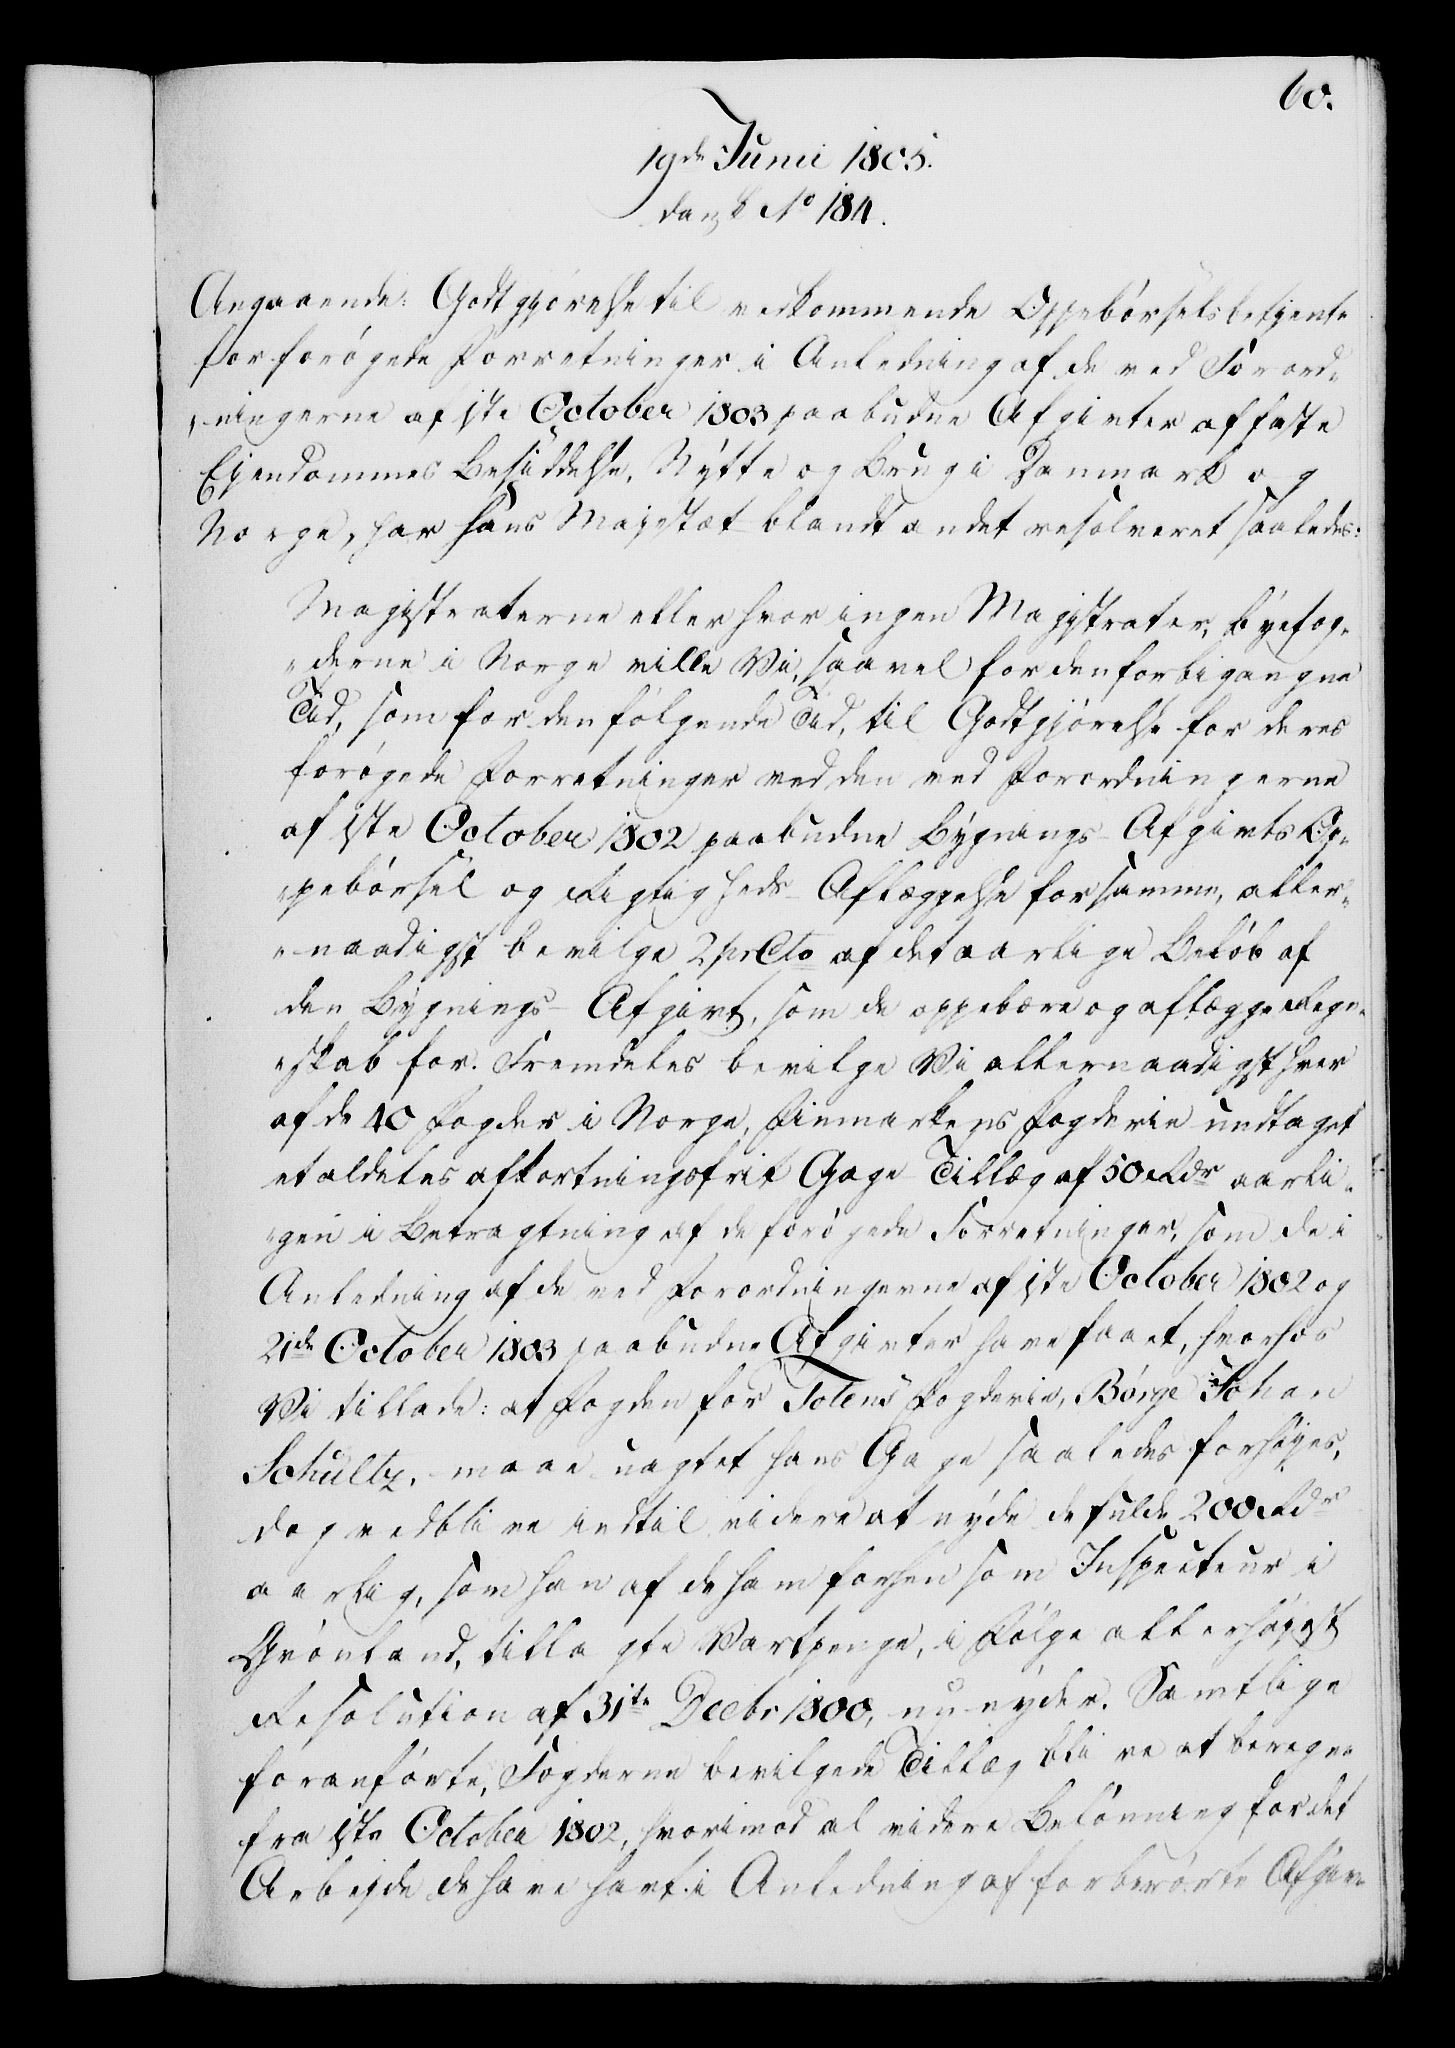 60.
19de Junii 1805.
dansk No 184.
Angaaende: Godtgjörelse til vedkommende Oppebörselsbetjente
for forögede Forretninger i Anledning af de ved Forord„
„ningerne af 1ste October 1803 paabudne Afgivter af faste
Ejendommes Besiddelse, Nytte og Brug i Danmark og
Norge, har Hans Majestæt blandt andet resolveret saaledes:
Magistraterne eller hvor ingen Magistrater, Byefog„
„derne i Norge ville Vi, saavel for den forbigangne
Tid, som for den fölgende Tid, til Godtgjörelse for deres
forögede Forretninger ved den ved Forordningerne
af 1ste October 1802 paabudne Bygnings-Afgivts Op„
„pebörsel og Rigtigheds-Aflæggelse for samme, aller„
„naadigst bevilge 2 prCto af det aarlige Belöb af
den Bygnings-Afgivt, som de oppebære og aflægge Regn„
„skab for. Fremdeles bevilge Vi allernaadigst hver
af de 40 Fogder i Norge, Finmarkens Fogderie undtaget
et aldeles afkortningsfrit Gage Tillæg af 50 Rdr aarli„
„gen i Betragtning af de forögede Forretninger, som de i
Anledning af de ved Forordningerne af 1ste October 1802 og
21de October 1803 paabudne Afgivter have faaet, hvorhos
Vi tillade: at Fogden for Totens Fogderie, Börge Johan
Schultz, maae uagtet hans Gage saaledes forhöjes,
dog vedblive indtil videre at nyde de fulde 200 Rdr
aarlig, som han af de ham forhen som Inspecteur i
Grönland, tillagte Vartpenge, i Fölge allerhöjest
Resolution af 31te Decbr 1800, nu nyder. Samtlige
foranförte, Fogderne bevilgede Tillæg blive at beregne
fra 1ste October 1802, hvorimod al videre Belönning for det
Arbejde de have havt i Anledning af forberörte Afgiv„